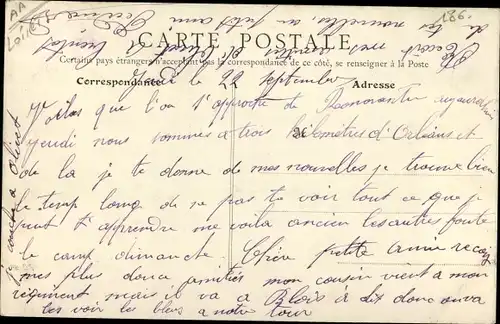 CARTE POSTALE
Certains pays étrangers n'acceptant pas la correspondance de ce côté, se renseigner à la Poste
Correspondance
Adresse
Jeudi le 22 septembre
Voilas que l'on s'approche de Romorantin aujourdhui
jeudi nous sommes a trois kilometres d'Orléans et
de la je te donne de mes nouvelles je trouve bien
le temp long de ne pas te voir tout ce que je
peut t'apprendre me voila ancien les autres foute
le camp dimanche Chère petite amie reçoi
mes plus douce amitiés mon cousin vient a mon
régiment mais il va a Blois à dit donc on va
les voir les bleus a notre tour
je couche a Olivet